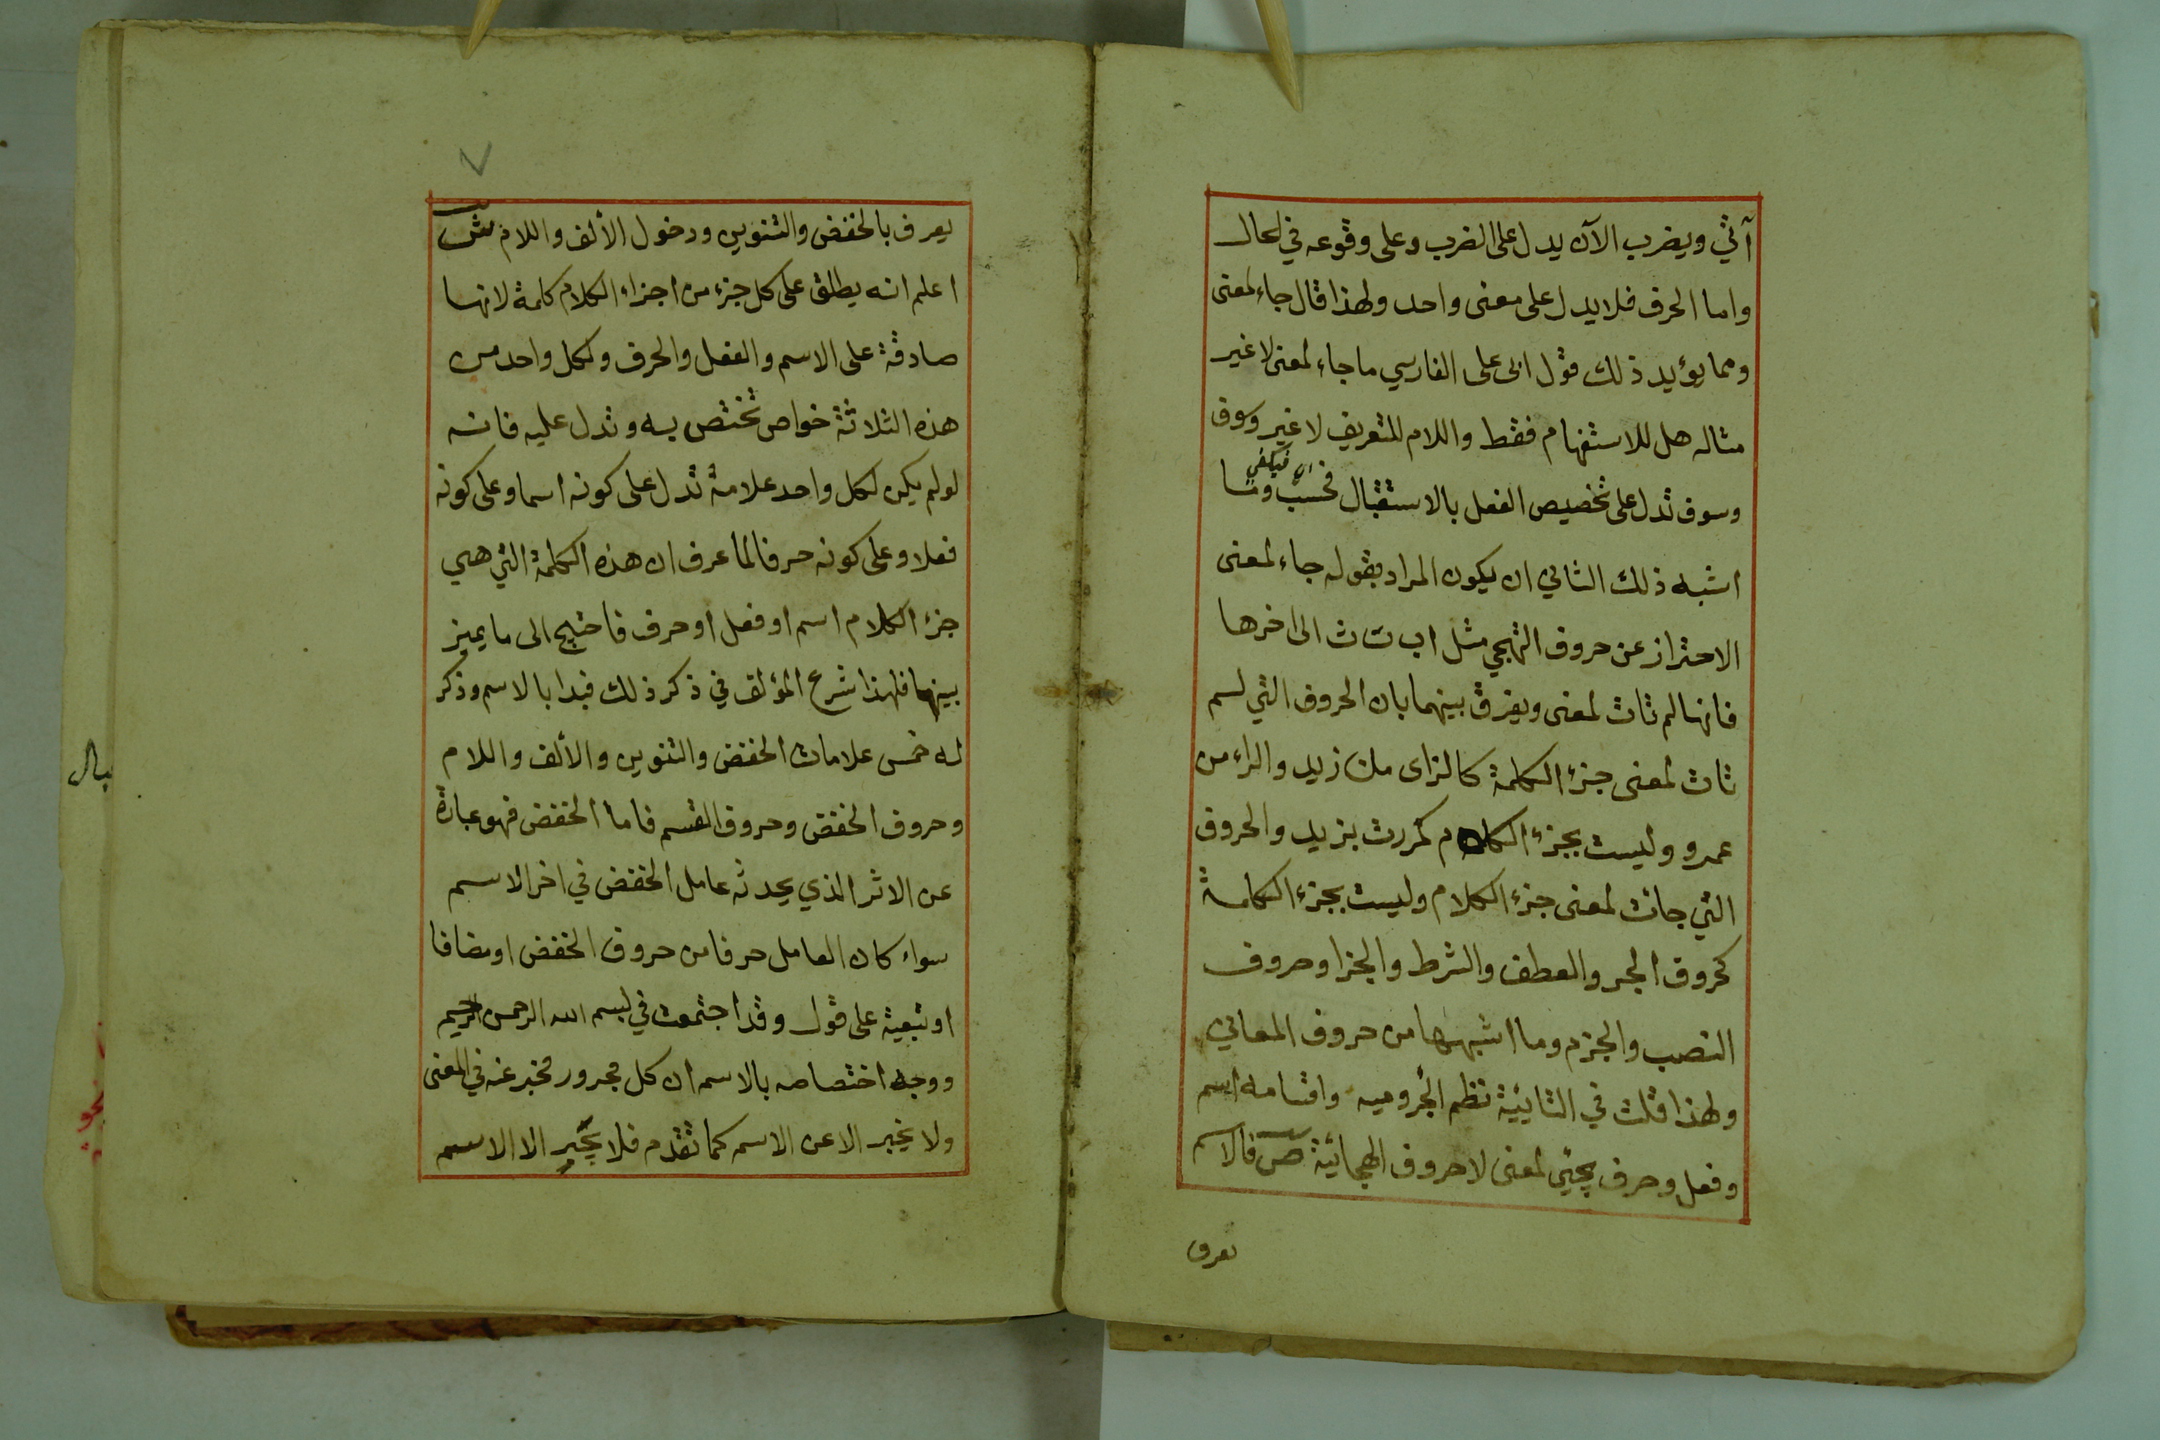 آتي ويضرب الآن يدل على الضرب وعلى وقوعه في الحال
واما الحرف فلا يدل على معنى واحد ولهذا قال جاء لمعنى
ومما يؤيد ذلك قول ابى على الفارسي ما جاء لمعنى لا غير
مثاله هل للاستفهام فقط واللام للتعريف لا غير وسوف
وسوف تدل على تخصيص الفعل بالاستقبال فحسب وما
اي فيكفي
اشبه ذلك الثاني ان يكون المراد بقوله جاء لمعنى
الاحتراز عن حروف التهجي مثل اب ت ث الى اخرها
فانها لم تات لمعنى ويفرق بينهما بان الحروف التي لم
تات لمعنى جزء الكلمة كالزاى من زيد والراء من
عمرو وليست بجزء الكلام كمررت بزيد والحروف
التي جات لمعنى جزء الكلام وليست بجزء الكلمة
كحروف الجر والعطف والشرط والجزا وحروف
النصب والجزم وما اشبهها من حروف المعاني
ولهذا قلت في التائية نظم الجروميه واقسامه اسم
وفعل وحرف يجيي لمعنى لا حروف الهجائية ص فالاسم
يعرف
يعرف بالخفض والتنوين ودخول الألف واللام ش
اعلم انه يطلق على كل جزء من اجزاء الكلام كلمة لانها
صادقة على الاسم والفعل والحرف ولكل واحد من
هذه الثلاثة خواص تختص به وتدل عليه فانه
لو لم يكن لكل واحد علامة تدل على كونه اسما وعلى كونه
فعلا وعلى كونه حرفا لما عرف ان هذه الكلمة التي هي
جزء الكلام اسم او فعل او حرف فاحتيج الى ما يميز
بينها فلهذا شرع المؤلف في ذكر ذلك فبدا بالاسم وذكر
له خمس علامات الخفض والتنوين والألف واللام
وحروف الخفض وحروف القسم فاما الخفض فهو عبارة
عن الاثر الذي يحدثه عامل الخفض في اخر الاسم
سواء كان العامل حرفا من حروف الخفض او مضافا
او تبعية على قول وقد اجتمعت في بسم الله الرحمن الرحيم
ووجه اختصاصه بالاسم ان كل مجرور مخبر عنه في المعنى
ولا يخبر الا عن الاسم كما تقدم فلا يجر الا الاسم